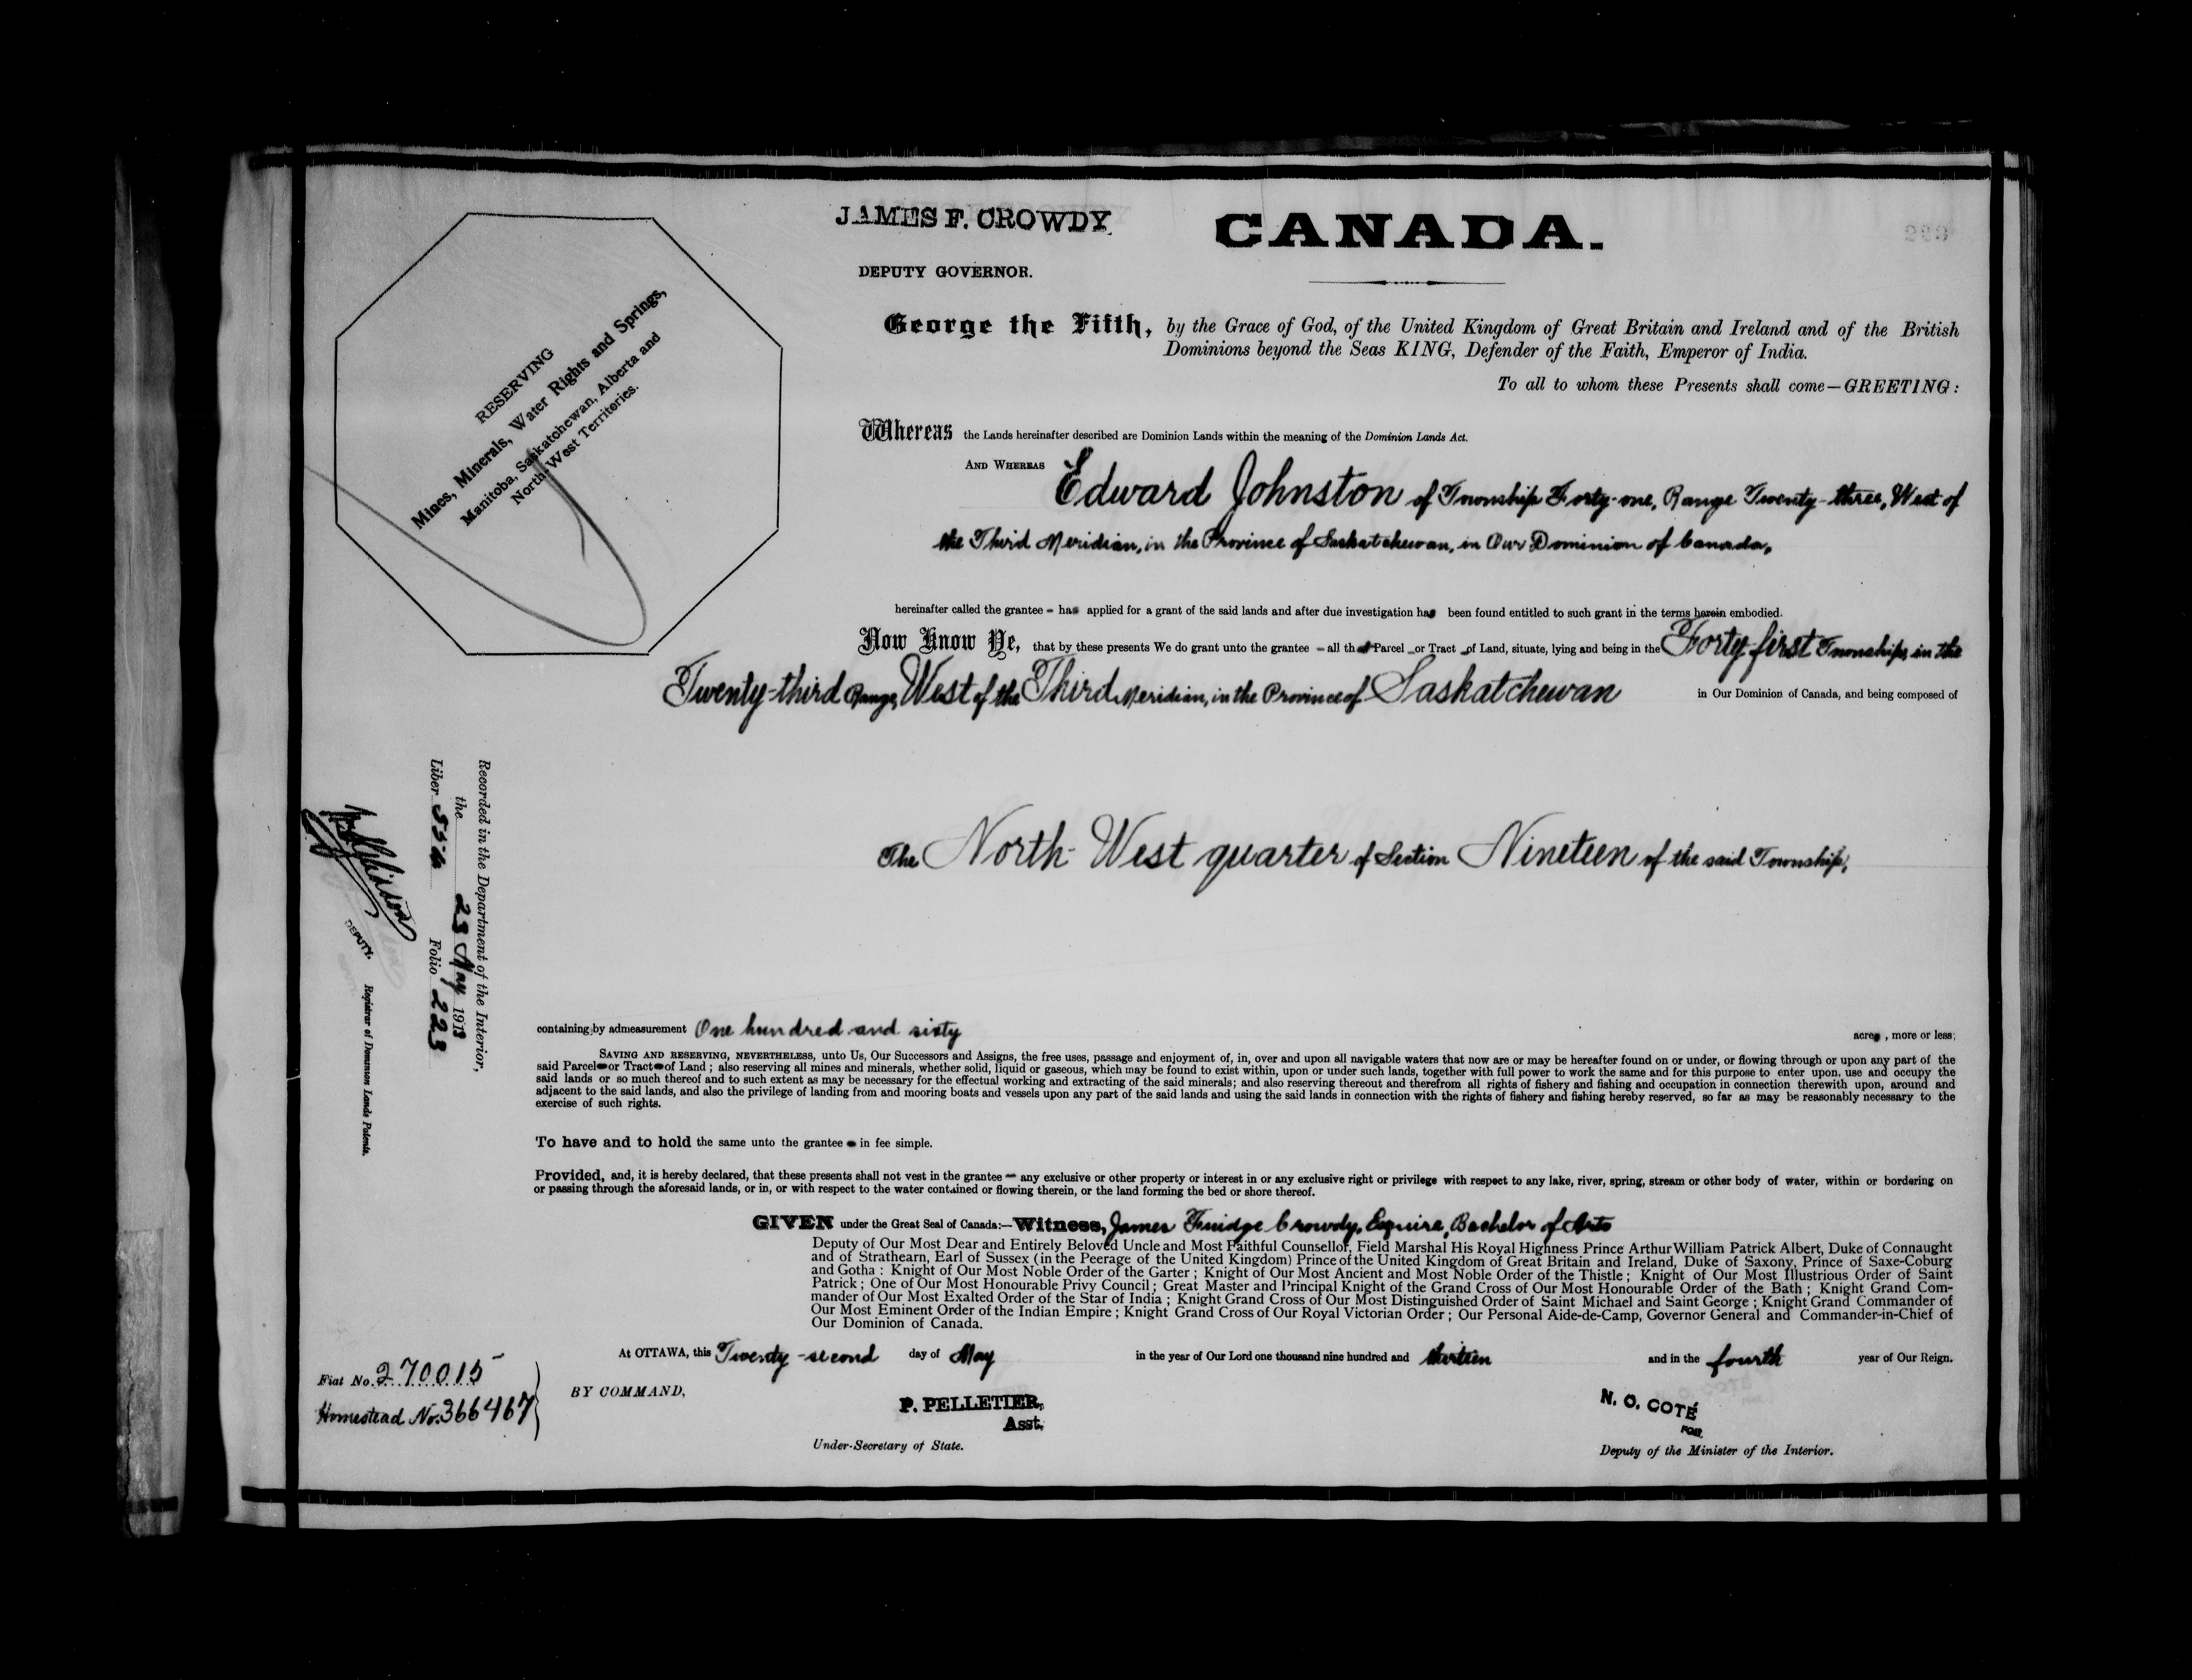 JAMES F. CROWDY
CANADA.
DEPUTY GOVERNOR.
RESERVING
Mines, Minerals, Water Rights and Springs,
Manitoba, Saskatchewan, Alberta and
North-West Territories.
George the Fifth, by the Grace of God, of the United Kingdom of Great Britain and Ireland and of the British
Dominions beyond the Seas KING, Defender of the Faith, Emperor of India.
To all to whom these Presents shall come—GREETING:
Whereas the Lands hereinafter described are Dominion Lands within the meaning of the Dominion Lands Act.
AND WHEREAS Edward Johnston of Township Forty-one, Range Twenty-three, West of
the Third Meridian, in the Province of Saskatchewan, in Our Dominion of Canada,
hereinafter called the grantee - has applied for a grant of the said lands and after due investigation has been found entitled to such grant in the terms herein embodied.
Now Know Ye, that by these presents We do grant unto the grantee - all that Parcel or Tract of Land, situate, lying and being in the Forty-first Township, in the
Twenty-third Range, West of the Third Meridian, in the Province of Saskatchewan in Our Dominion of Canada, and being composed of
The North-West quarter of Section Nineteen of the said Township,
Recorded in the Department of the Interior,
the 23 May 1913
Liber Folio 223
DEPUTY.
Registrar of Dominion Lands Patents.
containing by admeasurement One hundred and sixty acres, more or less;
SAVING AND RESERVING, NEVERTHELESS, unto Us, Our Successors and Assigns, the free uses, passage and enjoyment of, in, over and upon all navigable waters that now are or may be hereafter found on or under, or flowing through or upon any part of the
said Parcel or Tract of Land; also reserving all mines and minerals, whether solid, liquid or gaseous, which may be found to exist within, upon or under such lands, together with full power to work the same and for this purpose to enter upon, use and occupy the
said lands or so much thereof and to such extent as may be necessary for the effectual working and extracting of the said minerals; and also reserving thereout and therefrom all rights of fishery and fishing and occupation in connection therewith upon, around and
adjacent to the said lands, and also the privilege of landing from and mooring boats and vessels upon any part of the said lands and using the said lands in connection with the rights of fishery and fishing hereby reserved, so far as may be reasonably necessary to the
exercise of such rights.
To have and to hold the same unto the grantee in fee simple.
Provided, and, it is hereby declared, that these presents shall not vest in the grantee any exclusive or other property or interest in or any exclusive right or privilege with respect to any lake, river, spring, stream or other body of water, within or bordering on
or passing through the aforesaid lands, or in, or with respect to the water contained or flowing therein, or the land forming the bed or shore thereof.
GIVEN under the Great Seal of Canada:—Witness, James Fuidge Crowdy, Esquire, Bachelor of Arts
Deputy of Our Most Dear and Entirely Beloved Uncle and Most Faithful Counsellor, Field Marshal His Royal Highness Prince Arthur William Patrick Albert, Duke of Connaught
and of Strathearn, Earl of Sussex (in the Peerage of the United Kingdom) Prince of the United Kingdom of Great Britain and Ireland, Duke of Saxony, Prince of Saxe-Coburg
and Gotha: Knight of Our Most Noble Order of the Garter; Knight of Our Most Ancient and Most Noble Order of the Thistle; Knight of Our Most Illustrious Order of Saint
Patrick; One of Our Most Honourable Privy Council; Great Master and Principal Knight of the Grand Cross of Our Most Honourable Order of the Bath; Knight Grand Com-
mander of Our Most Exalted Order of the Star of India; Knight Grand Cross of Our Most Distinguished Order of Saint Michael and Saint George; Knight Grand Commander of
Our Most Eminent Order of the Indian Empire; Knight Grand Cross of Our Royal Victorian Order; Our Personal Aide-de-Camp, Governor General and Commander-in-Chief of
Our Dominion of Canada.
At OTTAWA, this Twenty-second day of May in the year of Our Lord one thousand nine hundred and thirteen and in the fourth year of Our Reign.
Fiat No. 270015
Homestead No. 366467
BY COMMAND,
P. PELLETIER,
Asst.
Under-Secretary of State.
N. O. COTÉ
FOR
Deputy of the Minister of the Interior.